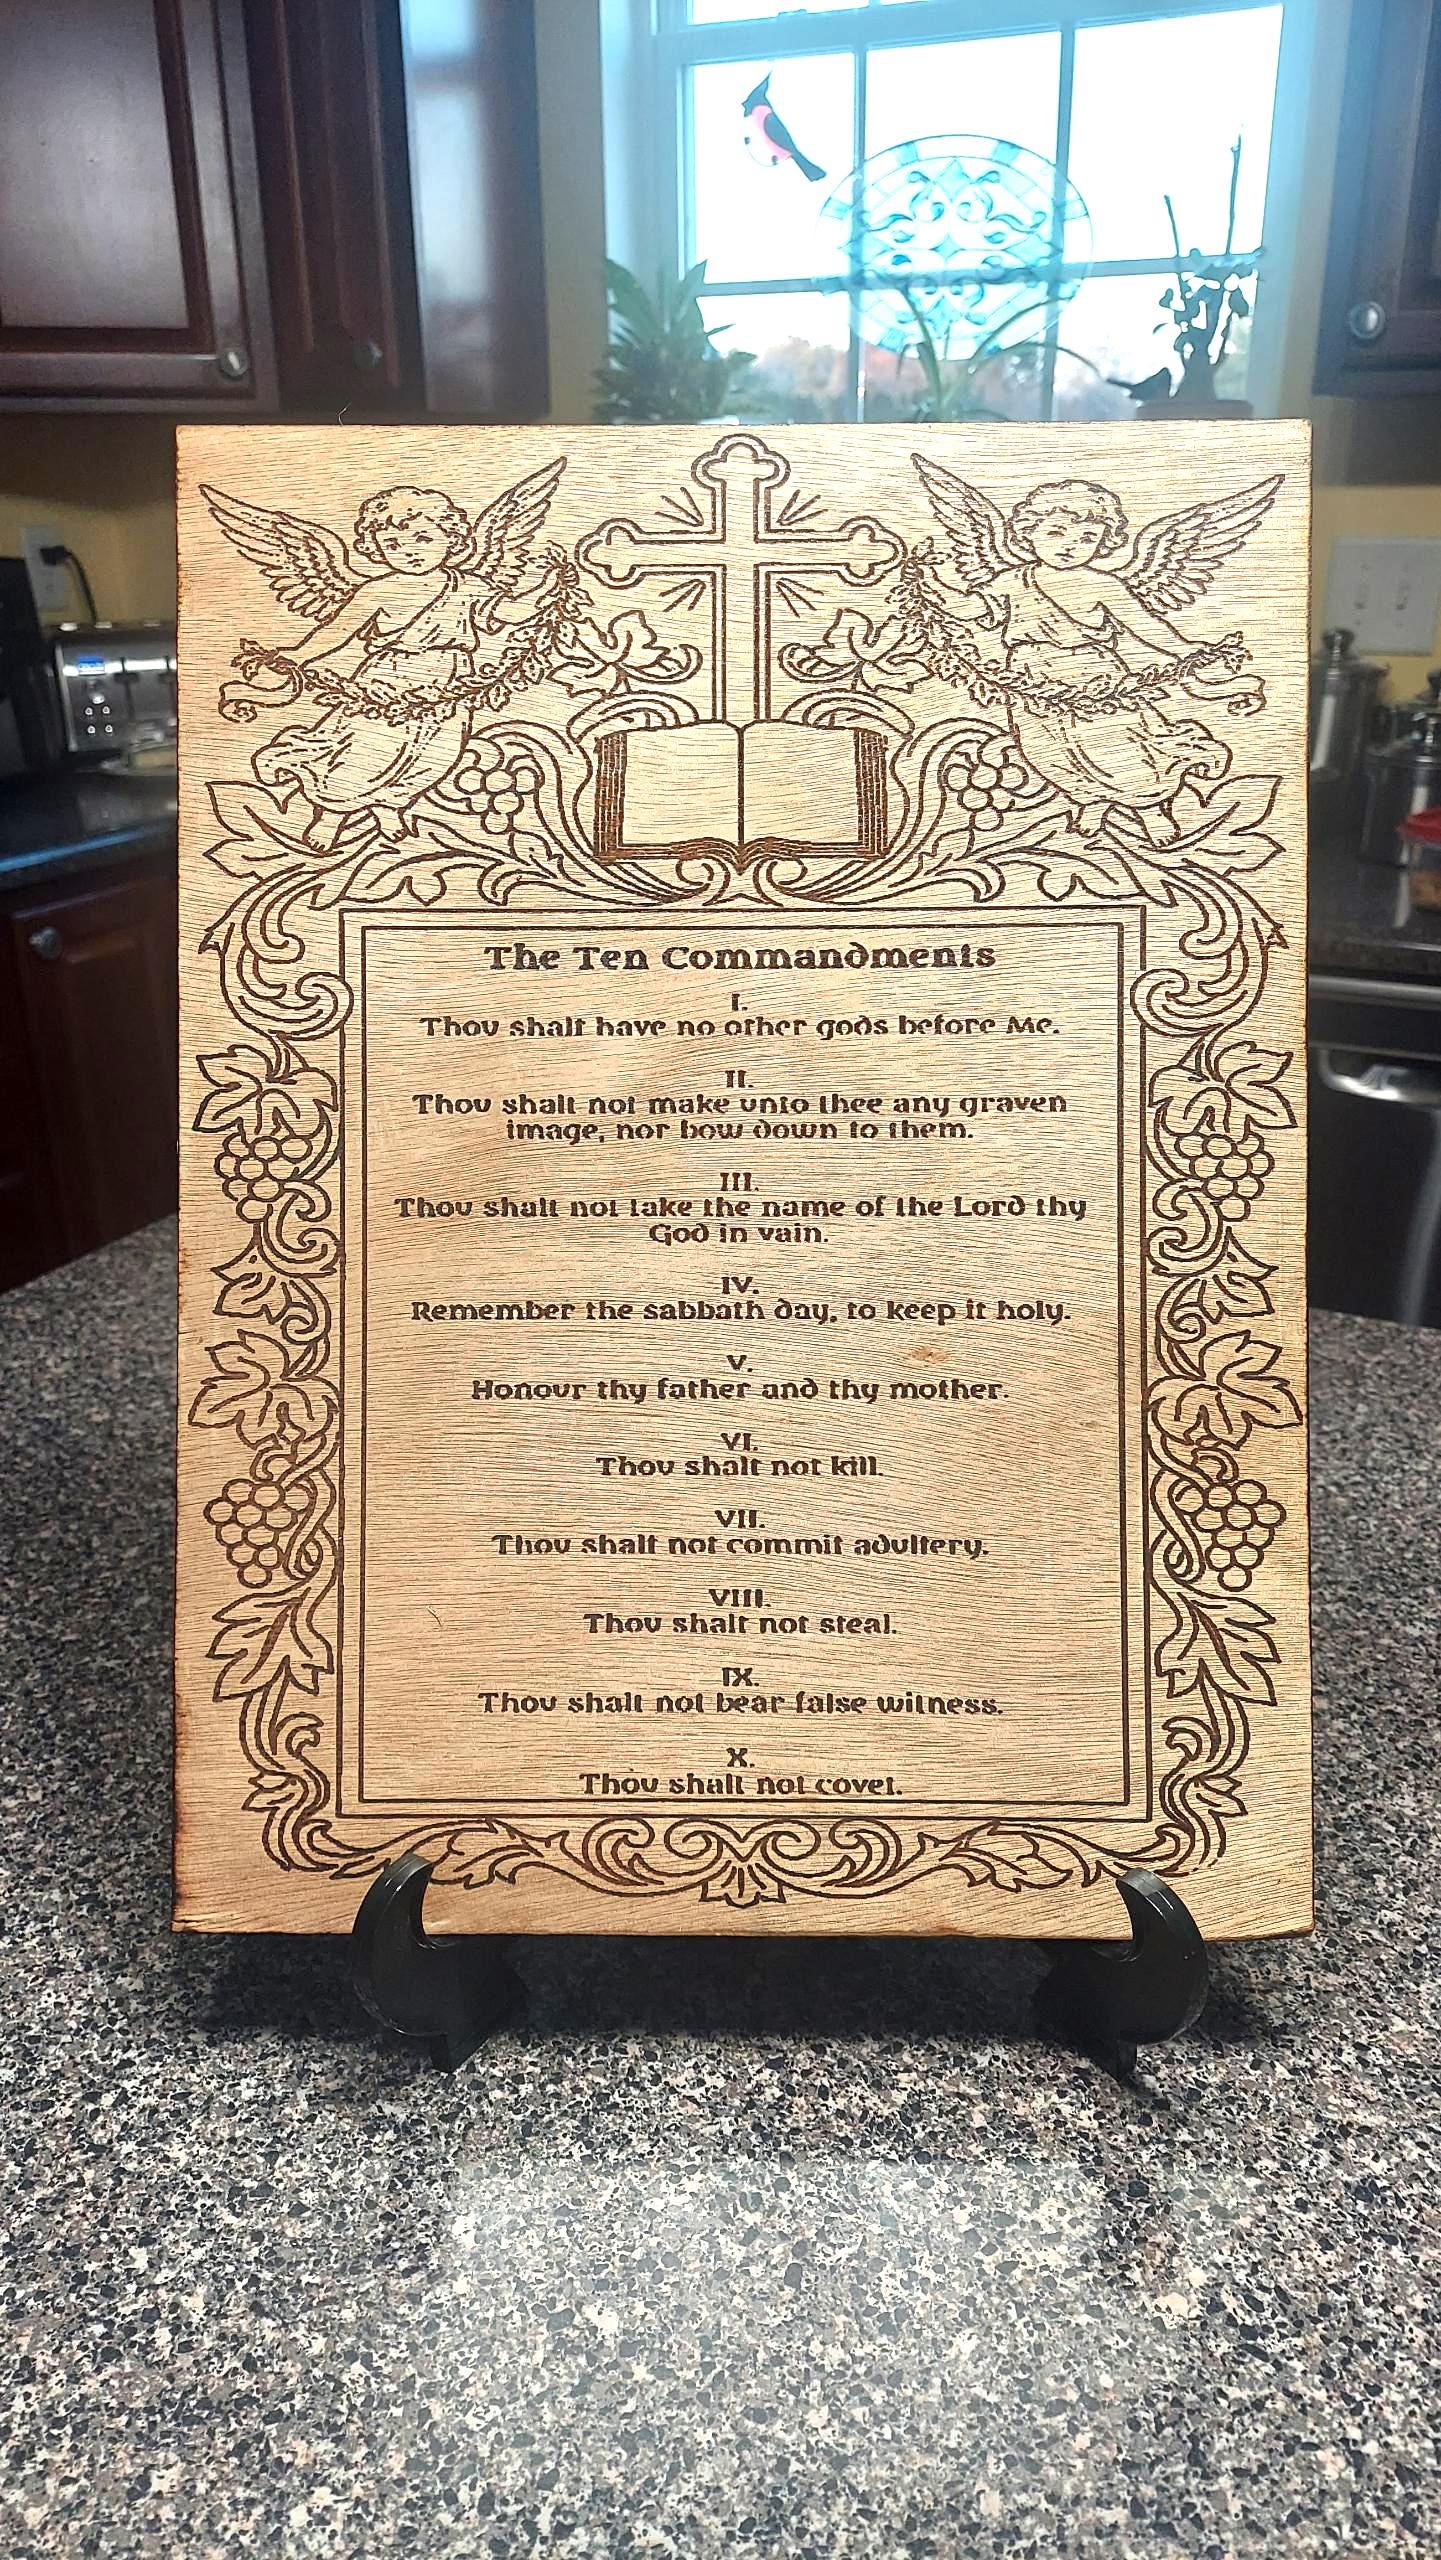 The Ten Commandments
I.
Thou shalt have no other gods before Me.
II.
Thou shalt not make unto thee any graven
image, nor bow down to them.
III.
Thou shalt not take the name of the Lord thy
God in vain.
IV.
Remember the sabbath day, to keep it holy.
V.
Honour thy father and thy mother.
VI.
Thou shalt not kill.
VII.
Thou shalt not commit adultery.
VIII.
Thou shalt not steal.
IX.
Thou shalt not bear false witness.
X.
Thou shalt not covet.